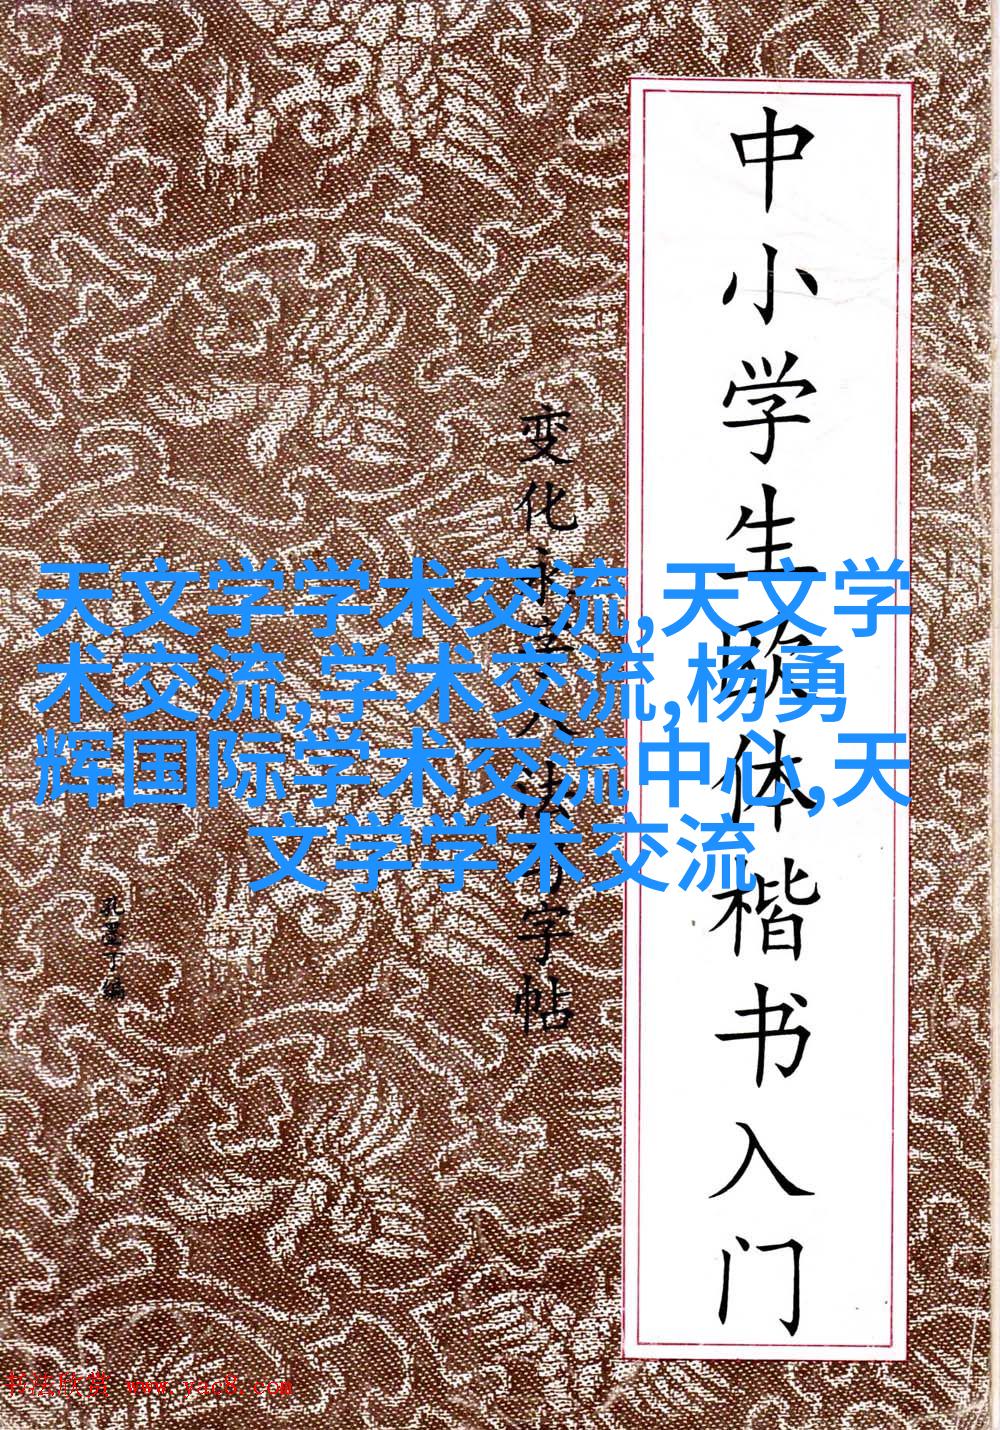 中小学生欧体楷书入门
变化永字八法习字帖
孔墨丁编
天文学学术交流,天文学
术交流,学术交流,杨勇
辉国际学术交流中心,天
文学学术交流
书法欣赏 www.yac8.com